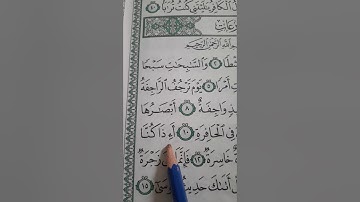 الْكَافِرُ يَٰلَيْتَنِى كُنتُ تُرَٰبًا
زعات
اللَّهِ الرَّحْمَٰنِ الرَّحِيمِ
طًا ٢ وَالسَّٰبِحَٰتِ سَبْحًا
تِ أَمْرًا ٥ يَوْمَ تَرْجُفُ الرَّاجِفَةُ
ذٍ وَاجِفَةٌ ٨ أَبْصَٰرُهَا
فِى الْحَافِرَةِ ١٠ أَءِذَا كُنَّا
خَاسِرَةٌ ١٢ فَإِنَّمَا زَجْرَةٌ
أَتَىٰكَ حَدِيثُ مُوسَىٰ ١٥